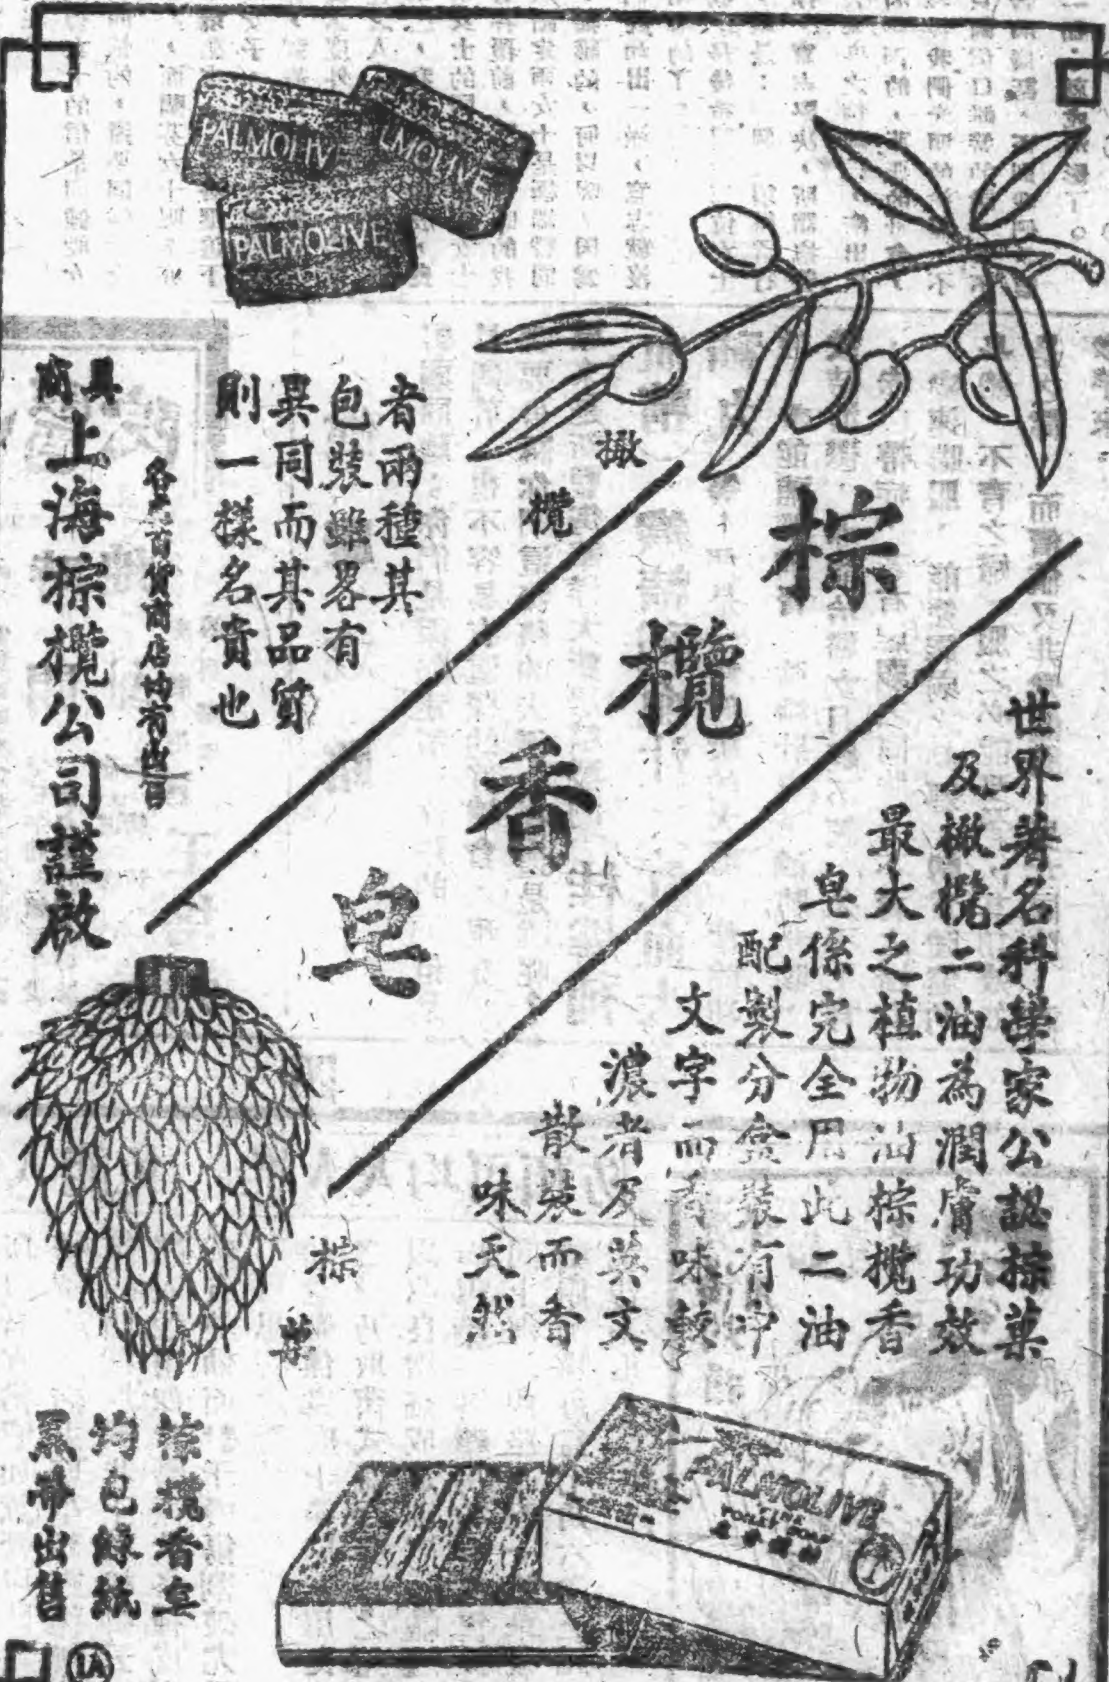 PALMOLIVE
LMOLIVE
PALMOLIVE
橄
欖
棕
欖
香
皂
世界著名科學家公認棕菓
及橄欖二油為潤膚功效
最大之植物油棕欖香
皂係完全用此二油
配製分盒裝有中
文字而香味較
濃者及英文
散裝而香
味天然
者兩種其
包裝雖畧有
異同而其品質
則一樣名貴也
各 百貨商店均有出售
美商
上海棕欖公司謹啟
棕
菓
棕欖香皂
均包綠紙
黑帶出售
PALMOLIVE
SOAP
1A